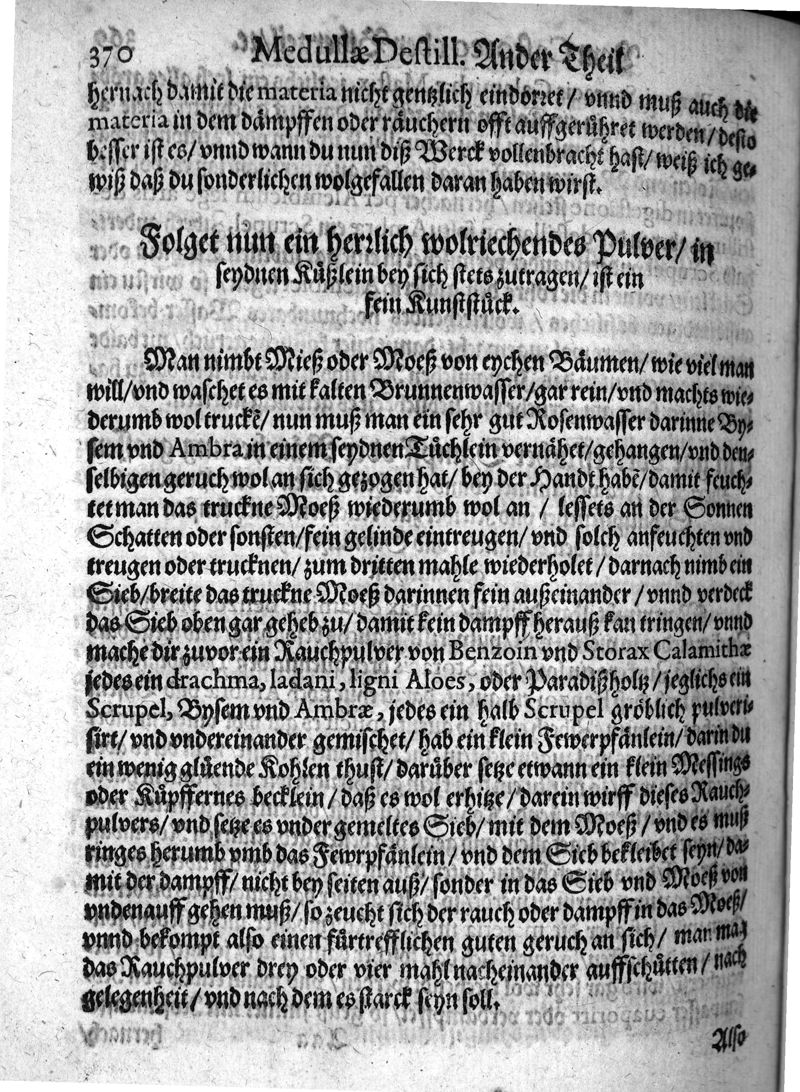 370 Medullæ Destill. Ander Theil
hernach damit die materia nicht gentzlich eindorret / vnnd muß auch die
materia in dem dämpffen oder räuchern offt auffgerühret werden / desto
besser ist es / vnnd wann du nun diß Werck vollenbracht hast / weiß ich ge-
wiß daß du sonderlichen wolgefallen daran haben wirst.
Folget nun ein herrlich wolriechendes Pulver / in
seydnen Küßlein bey sich stets zutragen / ist ein
fein Kunststück.
Man nimbt Mieß oder Moeß von eychen Bäumen / wie viel man
will / vnd waschet es mit kalten Brunnenwasser / gar rein / vnd machts wie-
derumb wol truckē / nun muß man ein sehr gut Rosenwasser darinne By-
sem vnd Ambra in einem seydnen Tüchlein vernähet / gehangen / vnd den-
selbigen geruch wol an sich gezogen hat / bey der Handt habē / damit feuch-
tet man das truckne Moeß wiederumb wol an / lessets an der Sonnen
Schatten oder sonsten / fein gelinde eintreugen / vnd solch anfeuchten vnd
treugen oder trucknen / zum dritten mahle wiederholet / darnach nimb ein
Sieb / breite das truckne Moeß darinnen fein außeinander / vnnd verdeck
das Sieb oben gar geheb zu / damit kein dampff herauß kan tringen / vnnd
mache dir zuvor ein Rauchpulver von Benzoin vnd Storax Calamithæ
jedes ein drachma, ladani, ligni Aloes, oder Paradißholtz / jeglichs ein
Scrupel, Bysem vnd Ambræ, jedes ein halb Scrupel gröblich pulveri-
sirt / vnd vndereinander gemischet / hab ein klein Fewerpfänlein / darin du
ein wenig glüende Kohlen thust / darüber setze etwann ein klein Messings
oder Küpffernes becklein / daß es wol erhitze / darein wirff dieses Rauch-
pulvers / vnd setze es vnder gemeltes Sieb / mit dem Moeß / vnd es muß
ringes herumb vmb das Fewrpfänlein / vnd dem Sieb bekleibet seyn / da-
mit der dampff / nicht bey seiten auß / sonder in das Sieb vnd Moeß von
vndenauff gehen muß / so zeucht sich der rauch oder dampff in das Moeß /
vnnd bekompt also einen fürtrefflichen guten geruch an sich / man mag
das Rauchpulver drey oder vier mahl nacheinander auffschütten / nach
gelegenheit / vnd nach dem es starck seyn soll.
Also